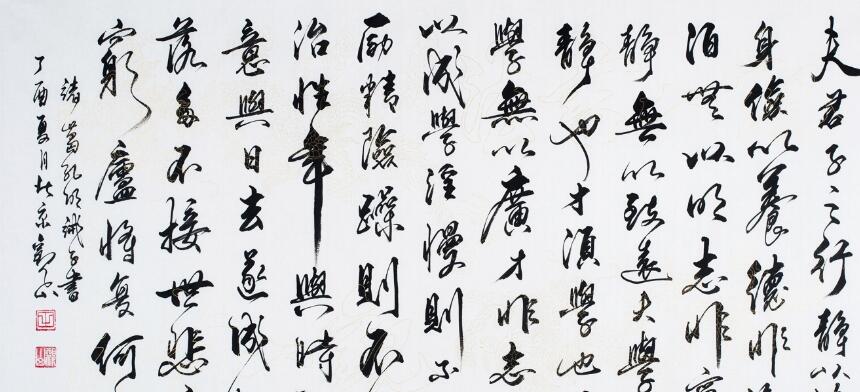 夫君子之行靜以
身儉以養德非
泊無以明志非
靜無以致遠夫學
靜也才須學也
學無以廣才非志
以成學淫慢則不
勵精險躁則不
治性年與時
意與日去遂成
落多不接世悲
窮廬將復何
諸葛孔明誡子書
丁酉夏月於京